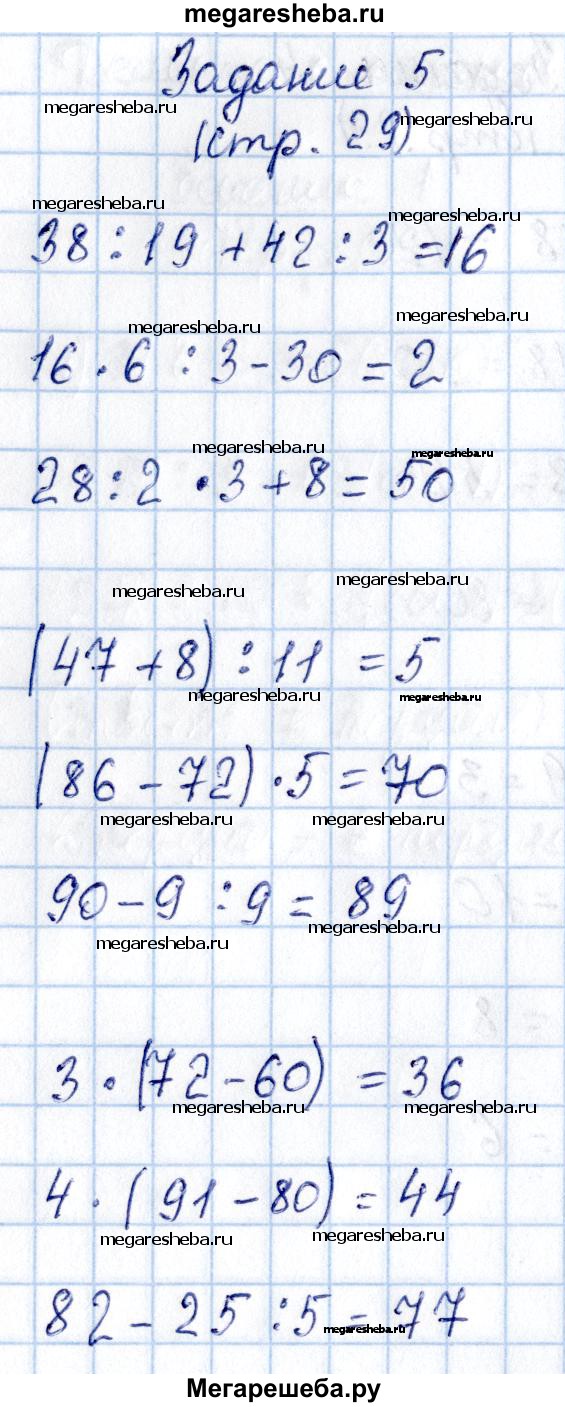 megaresheba.ru
Задание 5
megaresheba.ru
megaresheba.ru
(стр. 29)
megaresheba.ru
megaresheba.ru
38 : 19 + 42 : 3 = 16
megaresheba.ru
megaresheba.ru
16 · 6 : 3 - 30 = 2
megaresheba.ru
megaresheba.ru
28 : 2 · 3 + 8 = 50
megaresheba.ru
megaresheba.ru
(47 + 8) : 11 = 5
megaresheba.ru
megaresheba.ru
(86 - 72) · 5 = 70
megaresheba.ru
megaresheba.ru
90 - 9 : 9 = 89
megaresheba.ru
megaresheba.ru
3 · (72 - 60) = 36
megaresheba.ru
megaresheba.ru
4 · (91 - 80) = 44
megaresheba.ru
megaresheba.ru
82 - 25 : 5 = 77
megaresheba.ru
Мегарешеба.ру